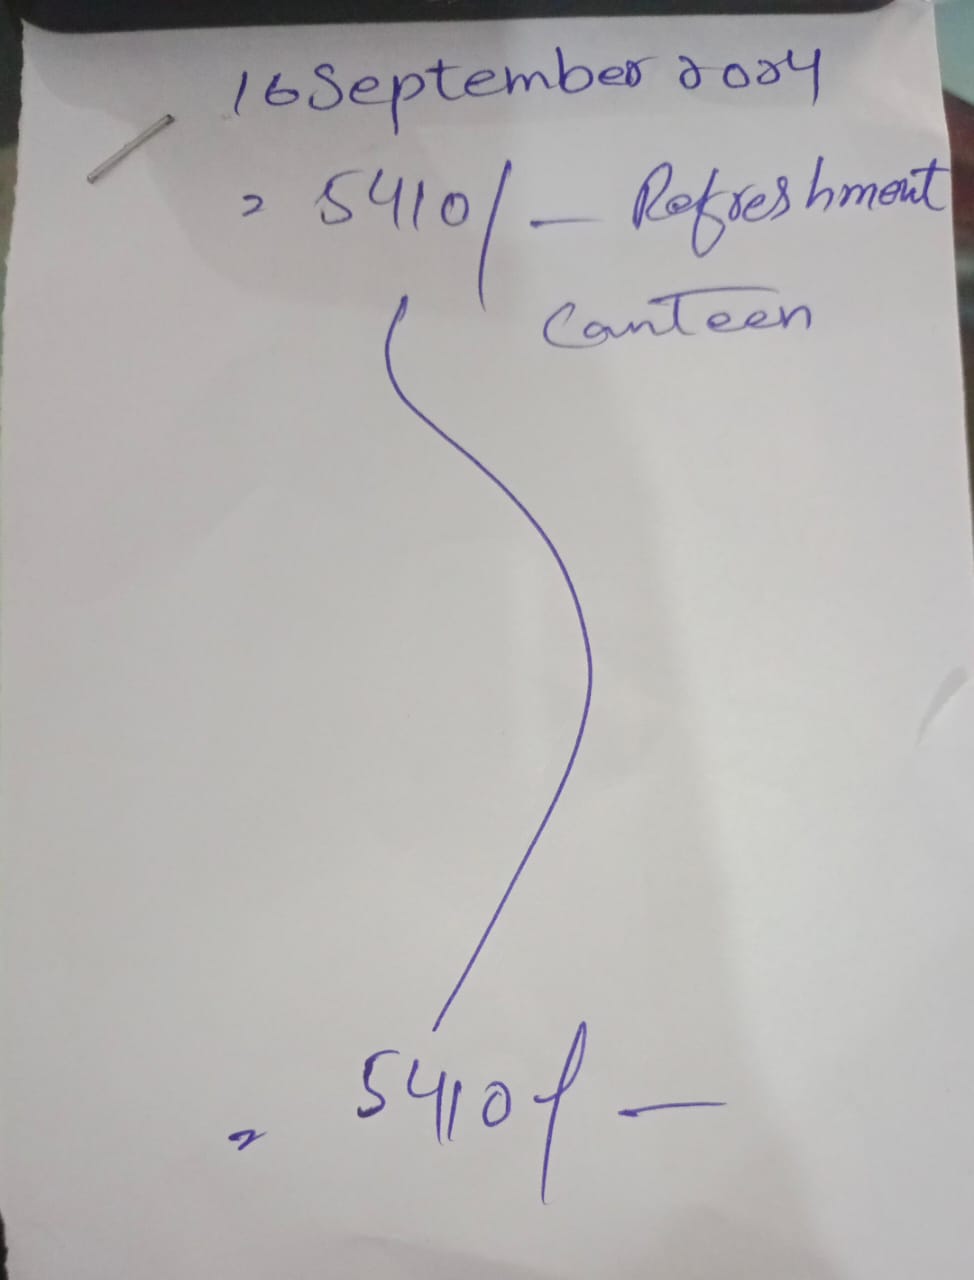 16 September 2024
= 5410/- Refreshment
Canteen
= 5410/-